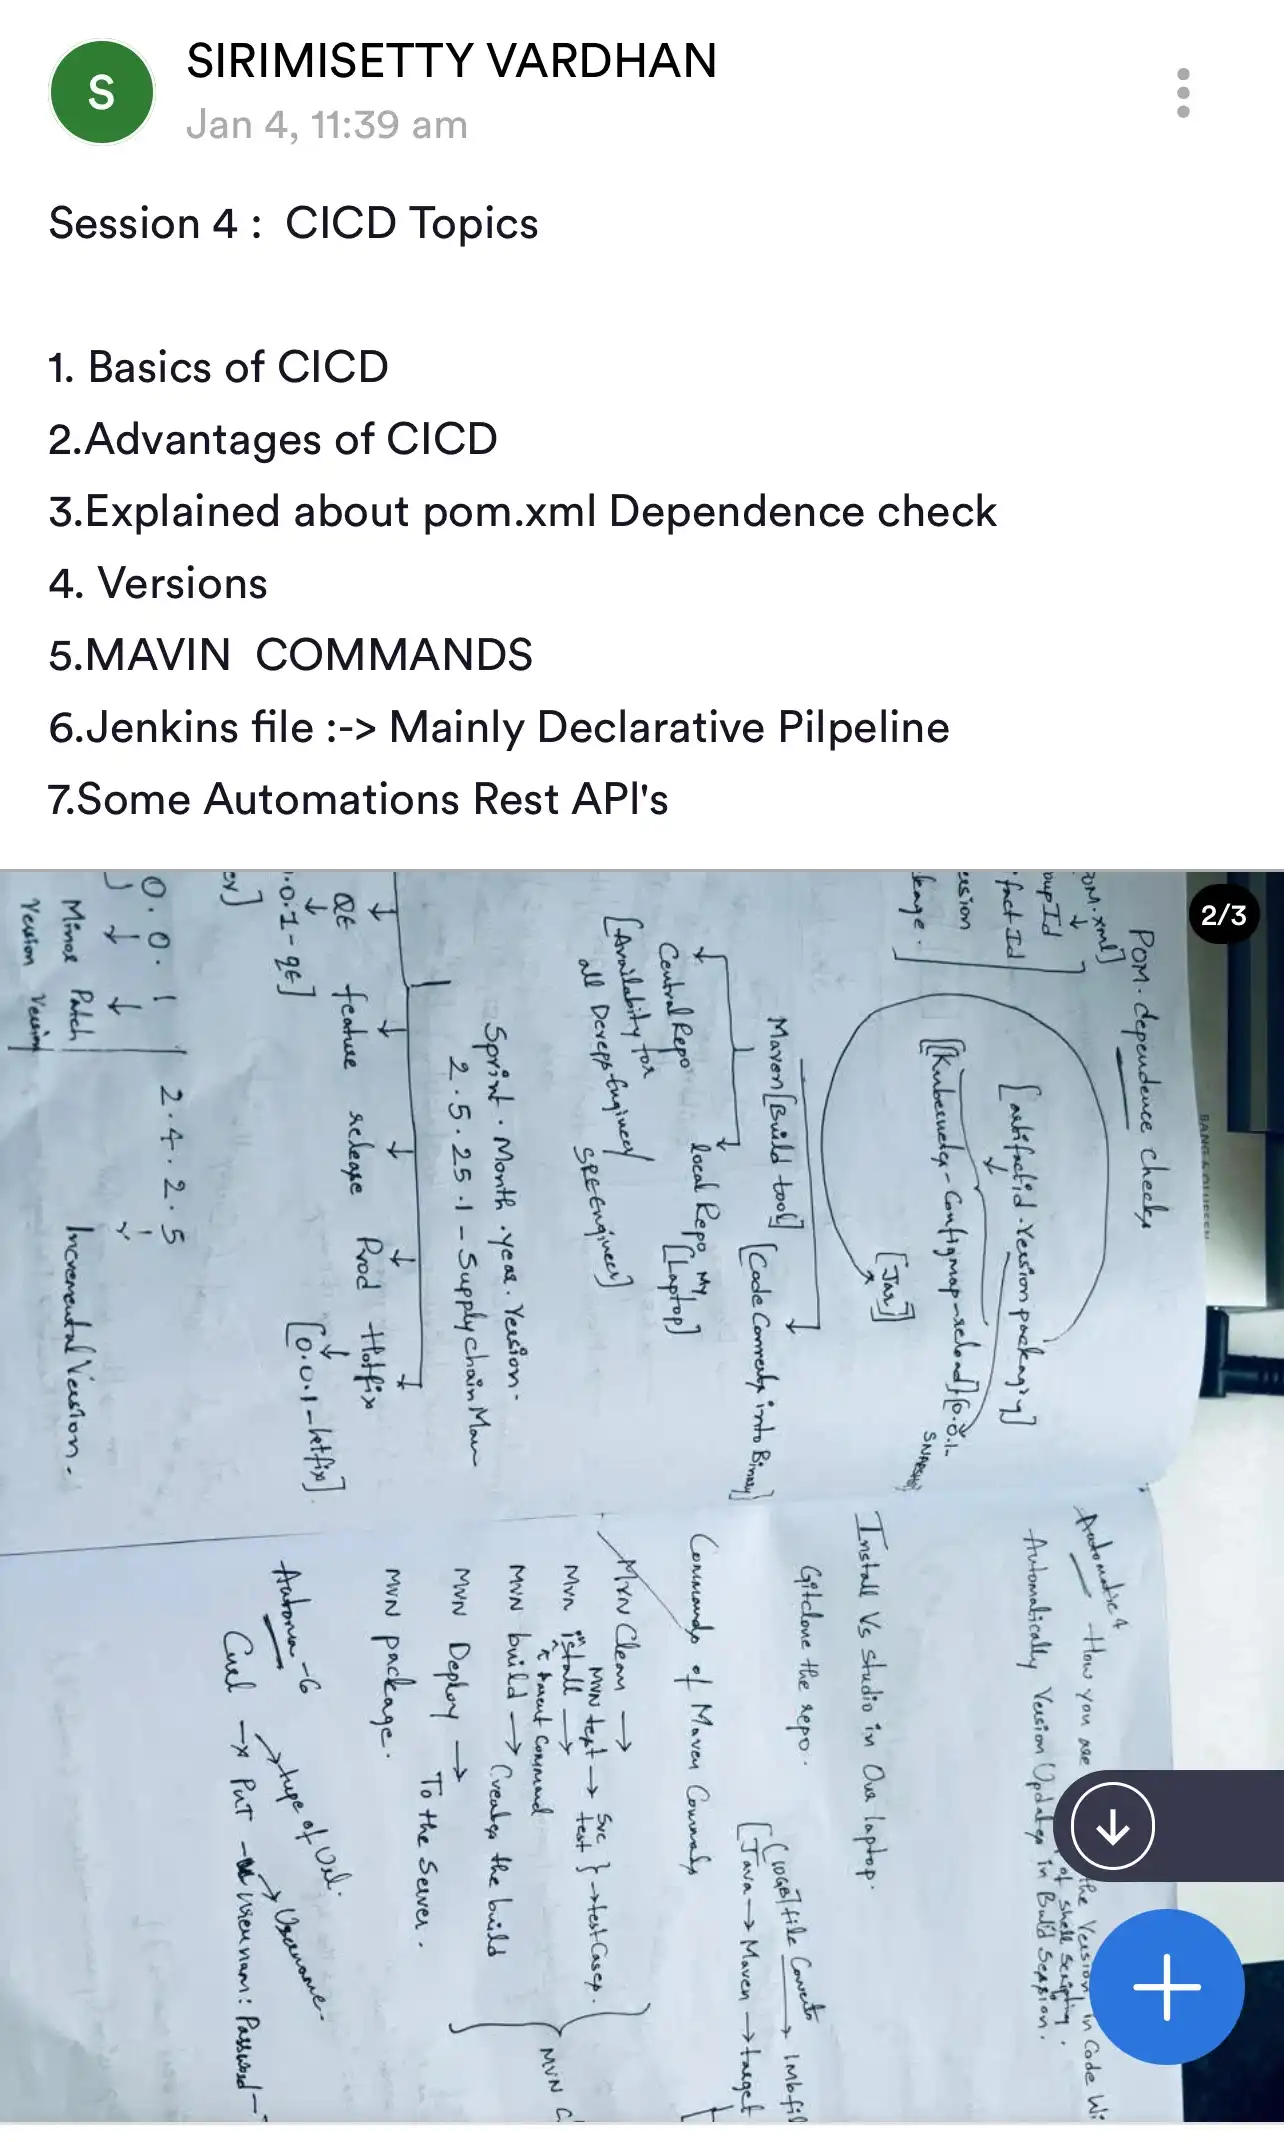 S
SIRIMISETTY VARDHAN
Jan 4, 11:39 am
Session 4 :  CICD Topics
1. Basics of CICD
2.Advantages of CICD
3.Explained about pom.xml Dependence check
4. Versions
5.MAVIN  COMMANDS
6.Jenkins file :-> Mainly Declarative Pilpeline
7.Some Automations Rest API's
2/3
POM. dependence checks
OM.xml]
oupId
factId
ersion
kage.
[artifactid.Version packaging]
[[Kubernetes-Configmap-reload][0.0.1-
SNAPSHOT
[Jar]
Maven [Build tool]
[Code Converts into Binary]
Central Repo
local Repo
My
[Laptop]
[Availability for
all Engineer
SRE Engineer]
Sprint. Month. year. Version.
2.5.25.1-Supply chain Man
QE feature release Prod Hotfix
0.0.1-QE]
[0.0.1-hotfix]
er]
0.0.1
2.4.2.5
Minor Patch
Version Version
Incremental Version.
How you are
the Version in Code Wi
of shell scripting.
Automatically Version Updates in Build Session.
Install Vs studio in Our laptop.
Gitclone the repo.
file Converts → 1mb fil
[Java → Maven → target
Commands of Maven Commands
MVN Clean →
MVN test → Src test } → test Cases.
MVN install →
Parent Command
MVN build → Creates the build
MVN Deploy → To the Server.
MVN package.
MVN C
Automa-6
type of Url.
Username.
Curl → PUT -u usernam: Password-
BANG & OLUFSEN